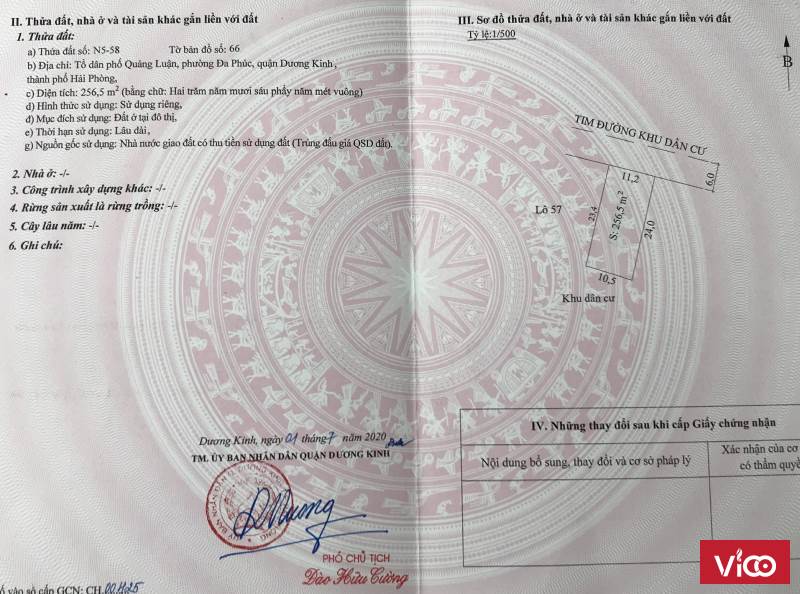 II. Thửa đất, nhà ở và tài sản khác gắn liền với đất
1. Thửa đất:
a) Thửa đất số: N5-58 Tờ bản đồ số: 66
b) Địa chỉ: Tổ dân phố Quảng Luận, phường Đa Phúc, quận Dương Kinh,
thành phố Hải Phòng,
c) Diện tích: 256,5 m² (bằng chữ: Hai trăm năm mươi sáu phẩy năm mét vuông)
d) Hình thức sử dụng: Sử dụng riêng,
đ) Mục đích sử dụng: Đất ở tại đô thị,
e) Thời hạn sử dụng: Lâu dài,
g) Nguồn gốc sử dụng: Nhà nước giao đất có thu tiền sử dụng đất (Trúng đấu giá QSD đất).
2. Nhà ở: -/-
3. Công trình xây dựng khác: -/-
4. Rừng sản xuất là rừng trồng: -/-
5. Cây lâu năm: -/-
6. Ghi chú:
Dương Kinh, ngày 01 tháng 7 năm 2020
TM. ỦY BAN NHÂN DÂN QUẬN DƯƠNG KINH
PHÓ CHỦ TỊCH
Đào Hữu Cường
số vào sổ cấp GCN: CH.00425
III. Sơ đồ thửa đất, nhà ở và tài sản khác gắn liền với đất
Tỷ lệ:1/500
B
TIM ĐƯỜNG KHU DÂN CƯ
11,2
6,0
Lô 57
23,4
S: 256,5 m²
24,0
10,5
Khu dân cư
IV. Những thay đổi sau khi cấp Giấy chứng nhận
Nội dung bổ sung, thay đổi và cơ sở pháp lý
Xác nhận của cơ
có thẩm quyề
VICO